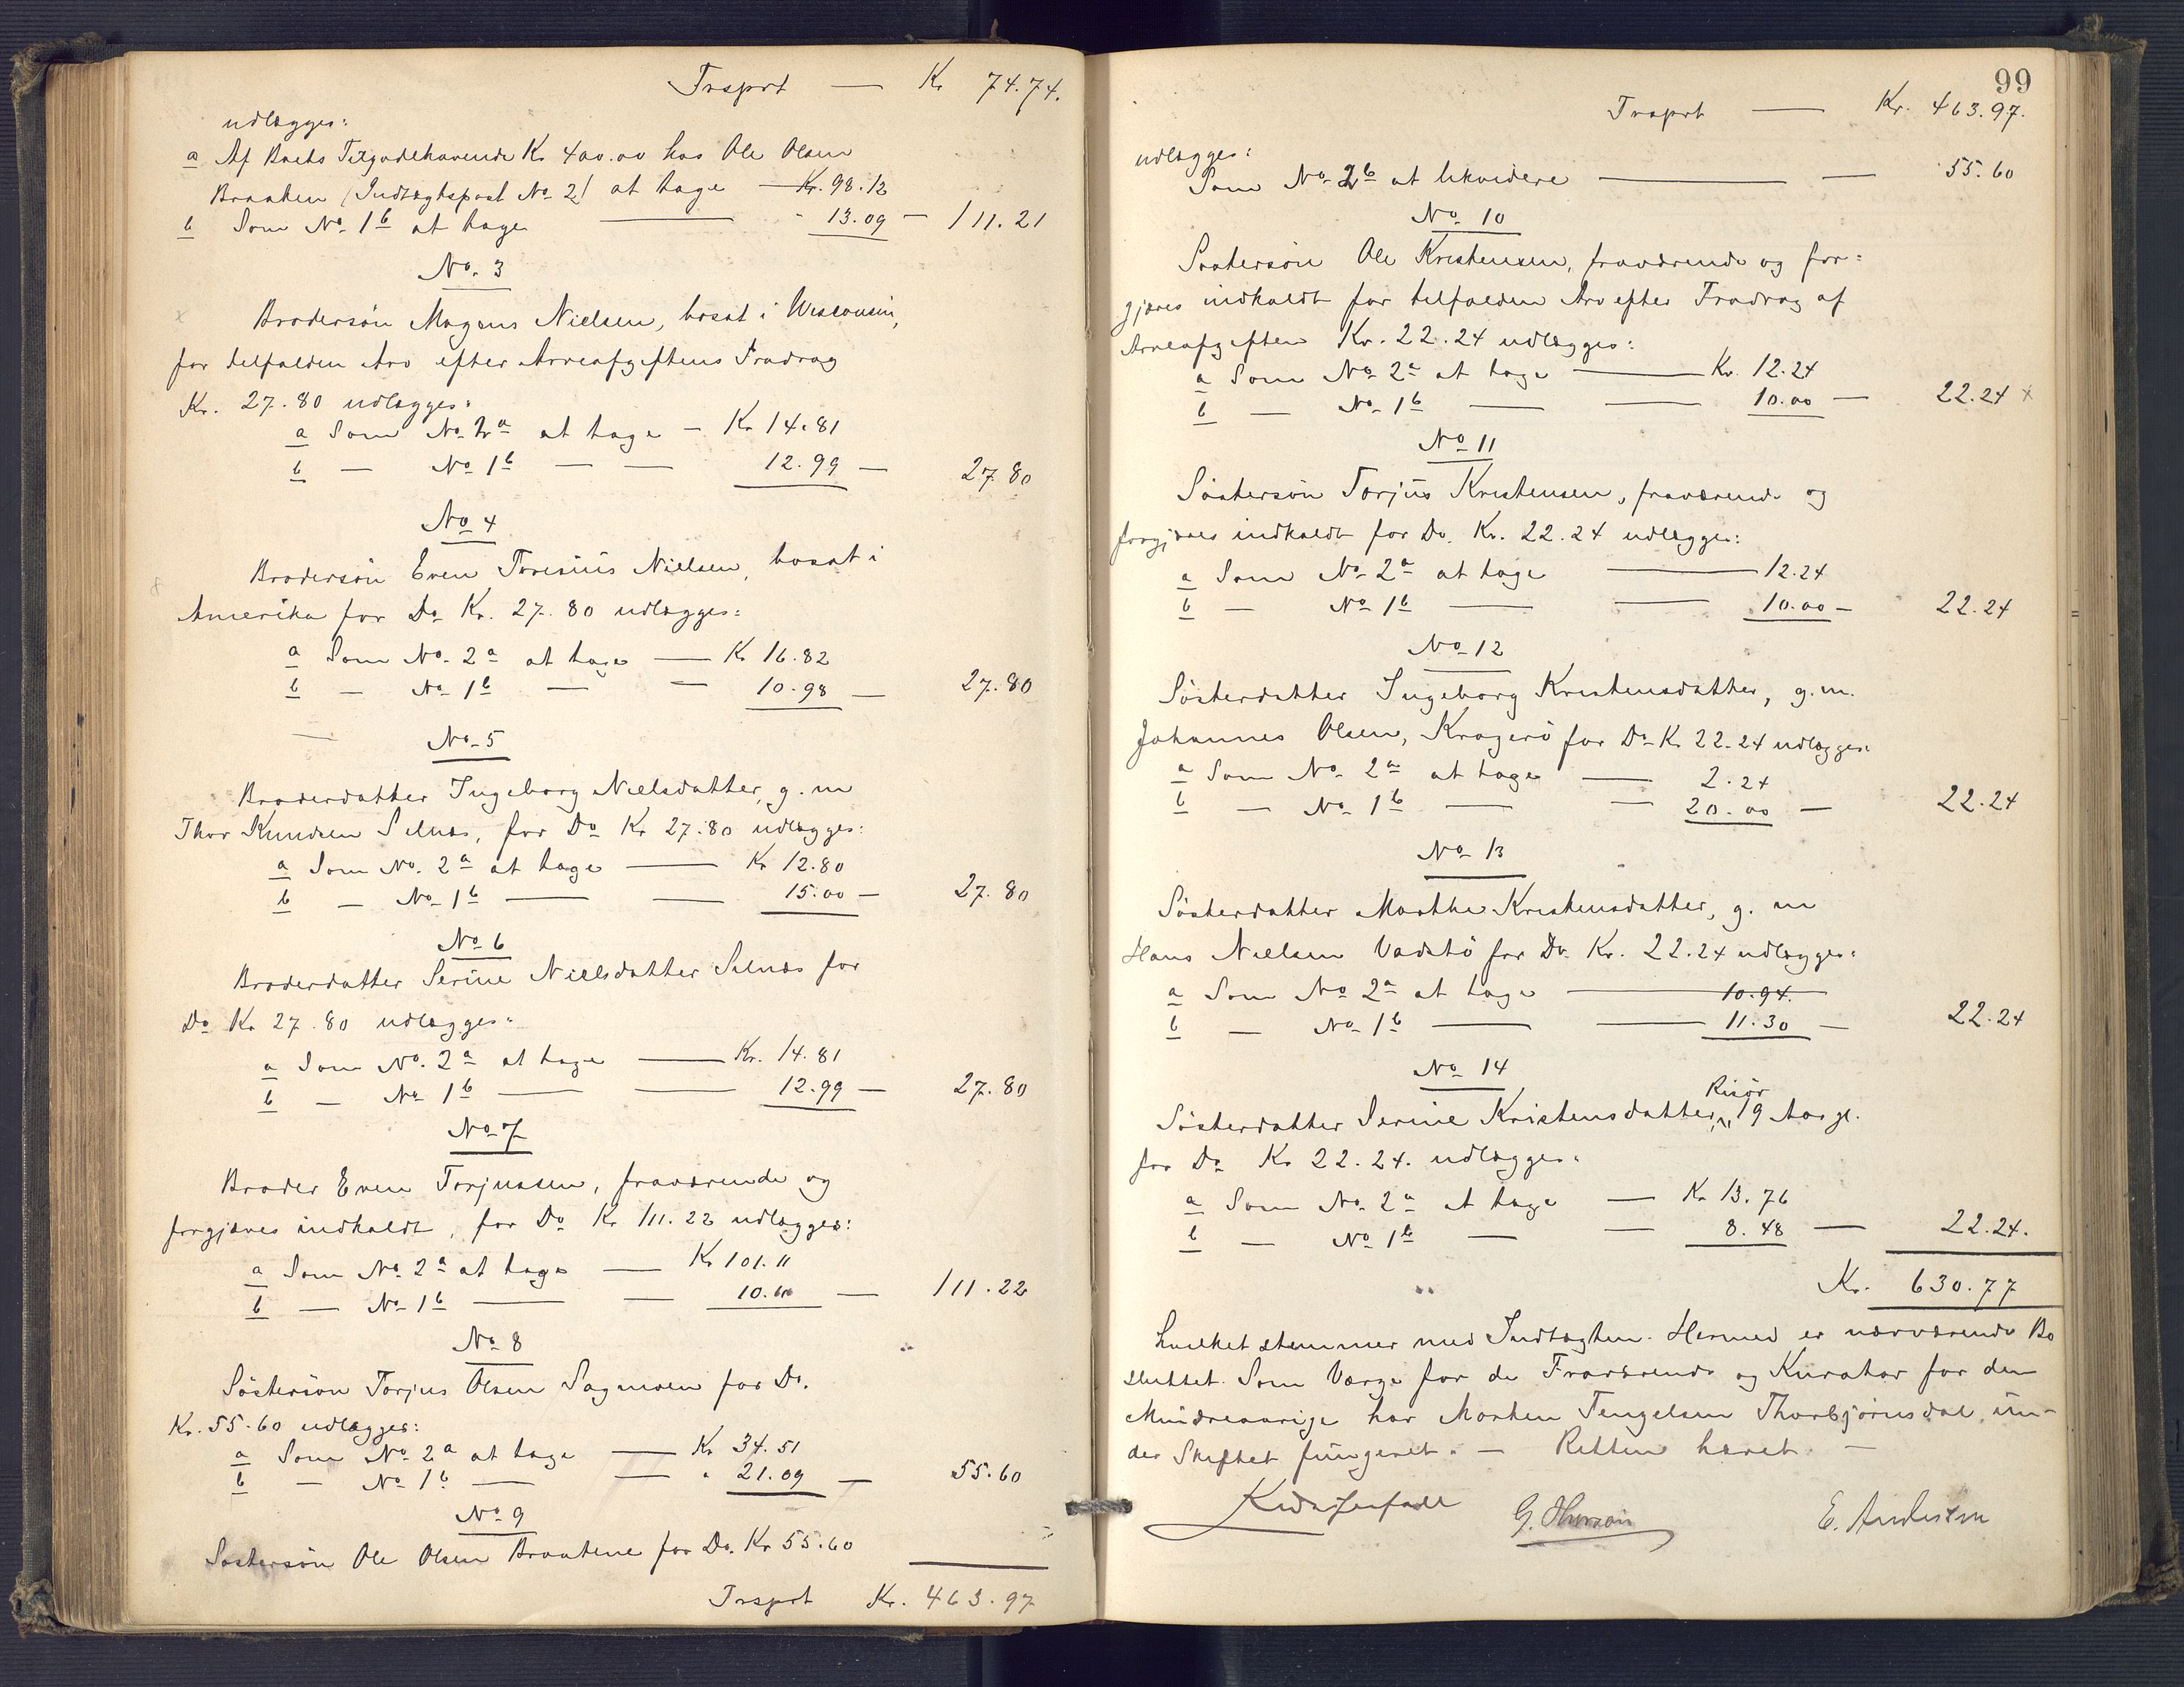 Trsprt — Kr 74.74.
udlægges:
a Af Boets Tilgodehavende Kr 400.00 hos Ole Olsen
Braaten (Indtægtspost No 2) at tage — Kr. 98.12
b Som No 1 b at tage — - 13.09 — 111.21
No. 3
Brodersön Mogens Nielsen, bosat i Wisconsin,
for tilfalden Arv efter Arveafgiftens Fradrag
Kr. 27.80 udlægges:
a Som No 2 a at tage — Kr 14.81
b — No 1 b — — 12.99 — 27.80
No 4
Brodersön Even Toresius Nielsen, bosat i
Amerika for Do Kr. 27.80 udlægges:
a Som No. 2 a at tage — Kr 16.82
b — No 1 b — — 10.98 — 27.80
No 5
Broderdatter Ingeborg Nielsdatter, g. m
Thor Knudsen Selnæs, for Do Kr 27.80 udlægges:
a Som No. 2 a at tage — Kr 12.80
b — No 1 b — — 15.00 — 27.80
No 6
Broderdatter Serine Nielsdatter Selnæs for
Do Kr 27.80 udlægges:
a Som No. 2 a at tage — Kr. 14.81
b — No 1 b — — 12.99 — 27.80
No 7
Broder Even Torjussen, fraværende og
forgjæves indkaldt, for Do Kr 111.22 udlægges:
a Som No 2 a at tage — Kr 101.11
b — No 1 b — — 10.11 — 111.22
No 8
Söstersön Torjus Olsen Sagmoen for Do.
Kr. 55.60 udlægges:
a Som No 2 a at tage — Kr 34.51
b — No 1 b — — " 21.09 — 55.60
No 9
Söstersön Ole Olsen Braatene for Do. Kr 55.60
Trsprt Kr. 463.97
99
Trsprt — Kr. 463.97.
udlægges:
Som No 2 b at likvidere — — 55.60
No 10
Söstersön Ole Kristensen, fraværende og for=
gjæves indkaldt for tilfalden Arv efter Fradrag af
Arveafgiften Kr. 22.24 udlægges:
a Som No 2 a at tage — Kr. 12.24
b — No 1 b — — 10.00 — 22.24 x
No 11
Söstersön Torjus Kristensen, fraværende og
forgjæves indkaldt for Do. Kr. 22.24 udlægges:
a Som No 2 a at tage — 12.24
b — No 1 b — — 10.00 — 22.24
No 12
Sösterdatter Ingeborg Kristensdatter, g. m.
Johannes Olsen, Kragerö for Do Kr 22.24 udlægges:
a Som No. 2 a at tage — 2.24
b — No 1 b — — 20.00 — 22.24
No 13
Sösterdatter Marthe Kristensdatter, g. m
Hans Nielsen Vadstö for Do. Kr. 22.24 udlægges:
a Som No 2 a at tage — 10.94.
b — No 1 b — — 11.30 — 22.24
No 14
Risør
Sösterdatter Serine Kristensdatter, 19 Aar gl.
for Do Kr 22.24. udlægges:
a Som No. 2 a at tage — Kr 13.76
b — No 1 b — — 8.48 — 22.24.
Kr. 630.77
hvilket stemmer med Indtægten. Hermed er nærværende Bo
sluttet. Som Værge for de Fraværende og Kurator for den
Mindreaarige har Morten Tengelsen Thorbjörnsdal un-
der Skiftet fungeret. — Retten hævet. —
E. Andersen